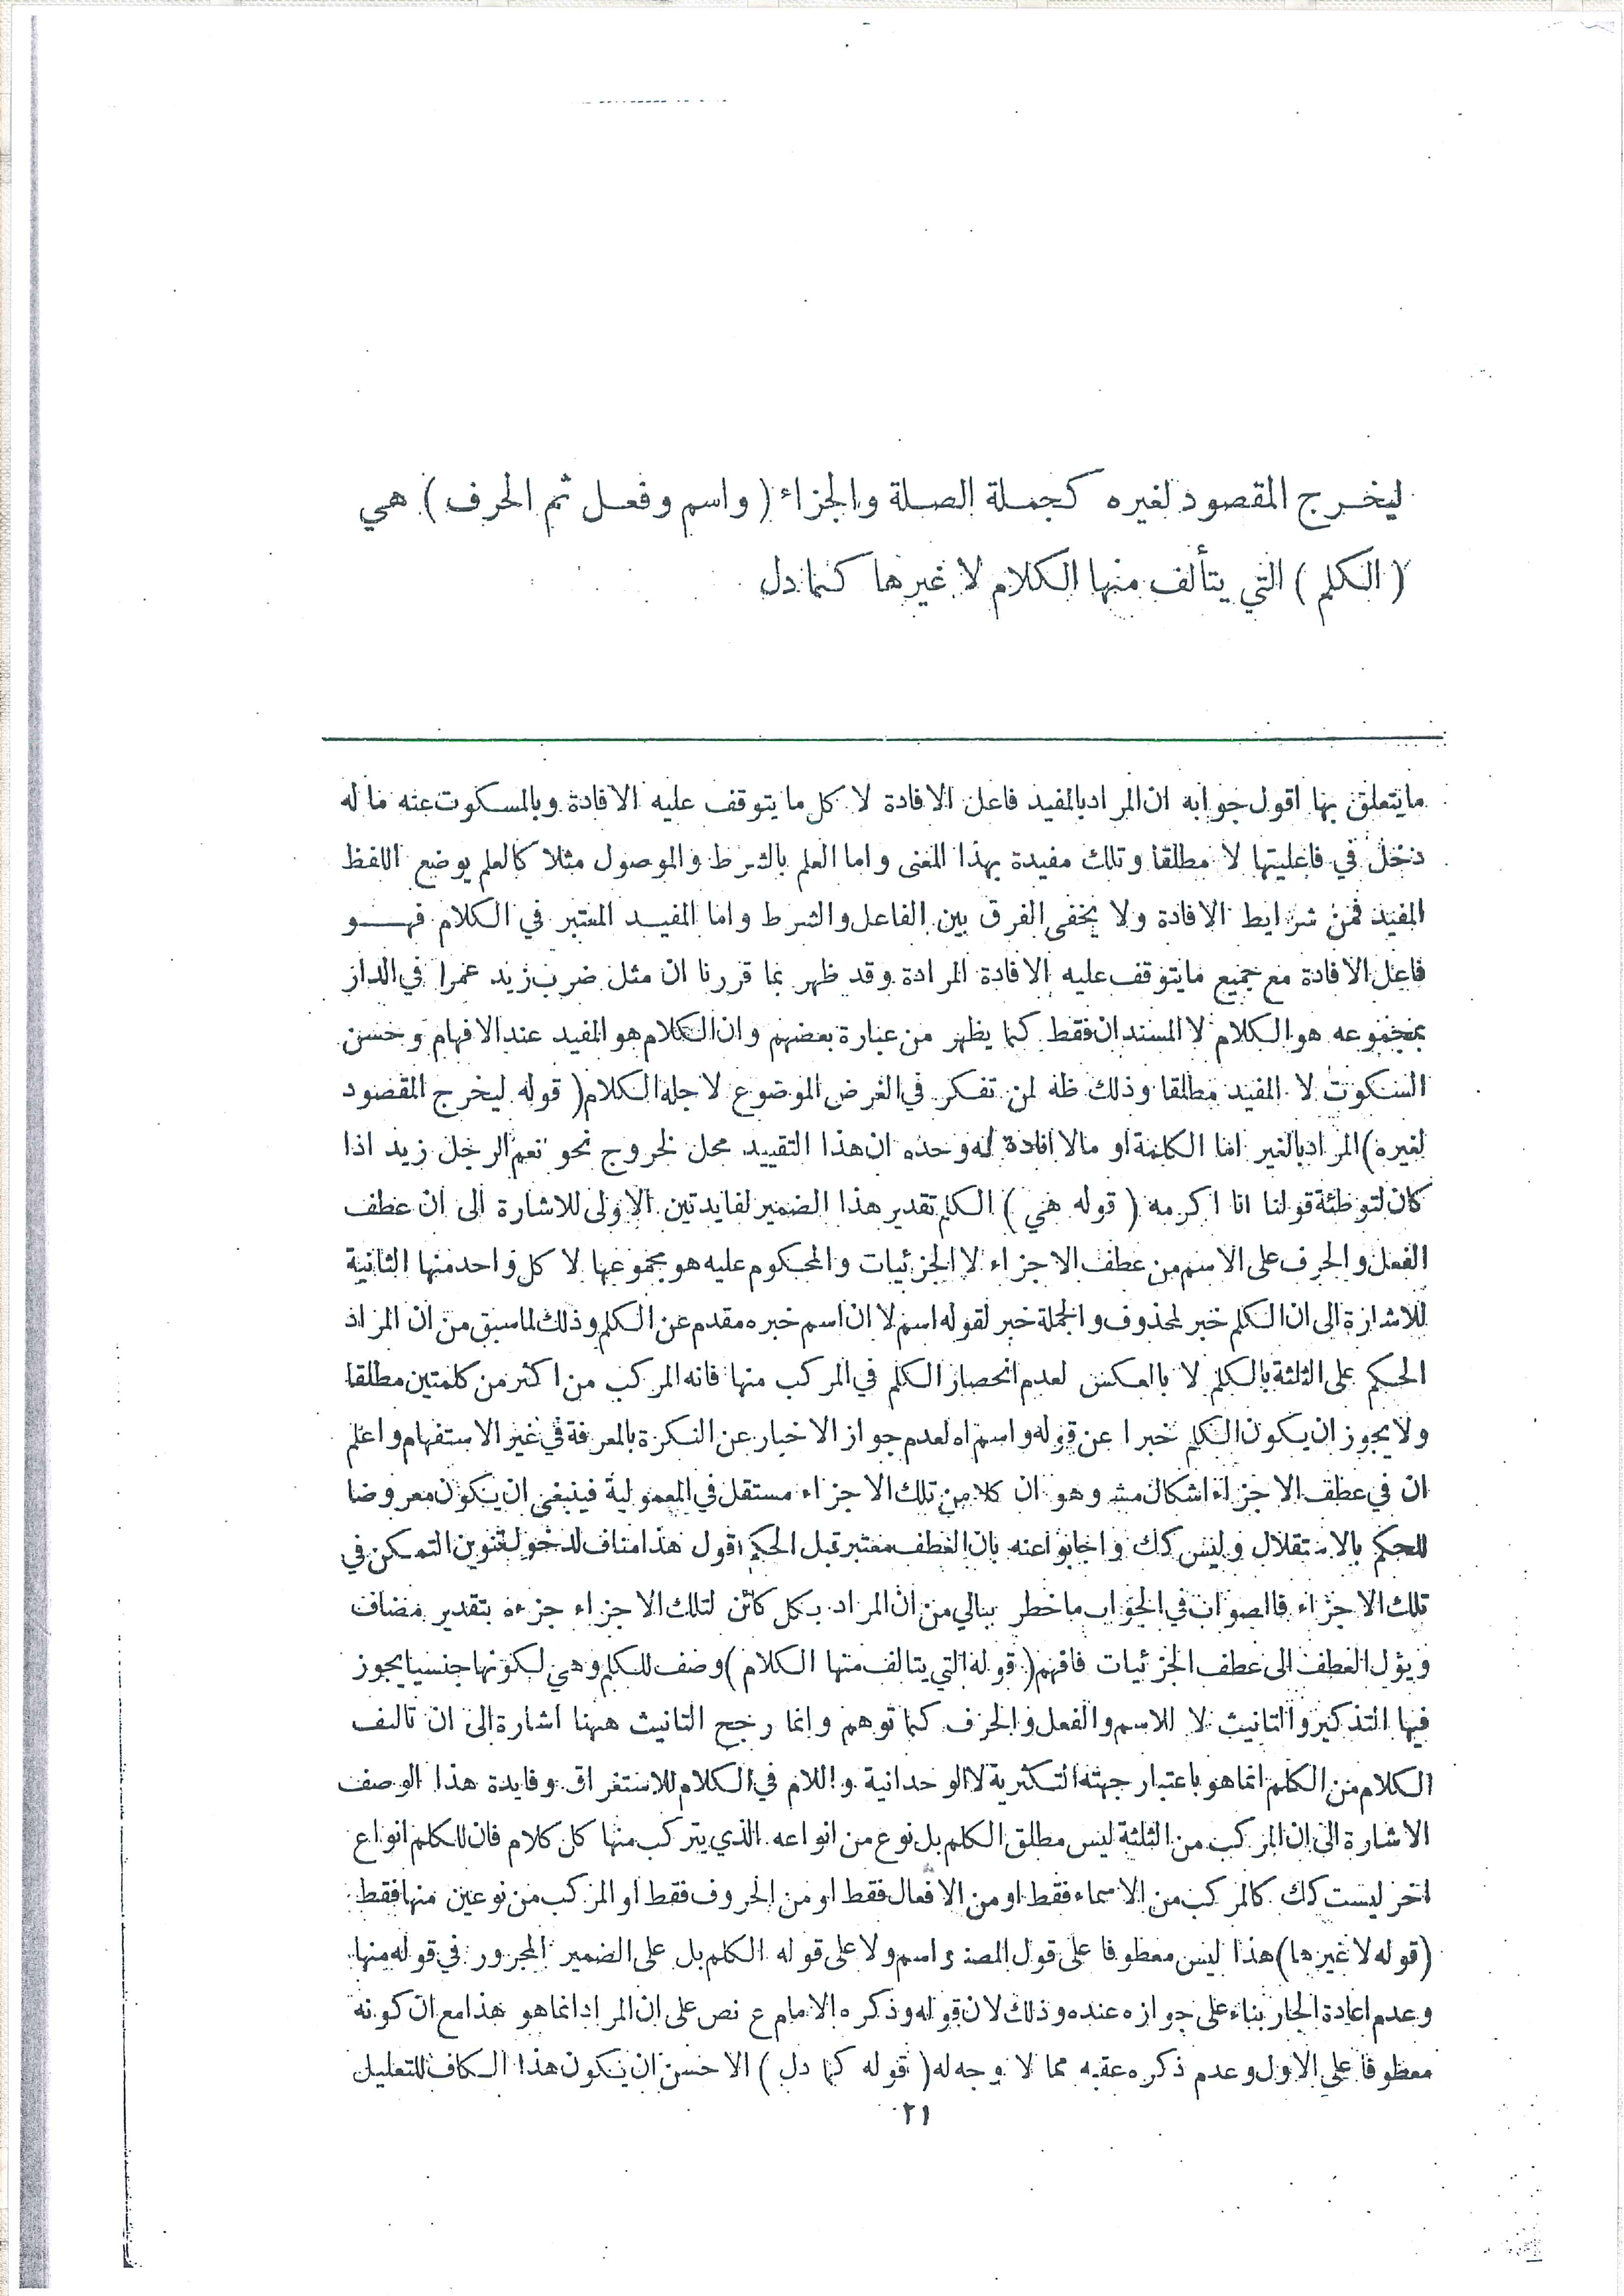 ليخرج المقصود لغيره كجملة الصلة والجزاء (واسم وفعل ثم الحرف) هي
(الكلم) التي يتألف منها الكلام لا غيرها كما دل
ما يتعلق بها اقول جوابه ان المراد بالمفيد فاعل الافادة لا كل ما يتوقف عليه الافادة وبالمسكوت عنه ما له
دخل في فاعليتها لا مطلقا وتلك مفيدة بهذا المعنى واما العلم بالشرط والموصول مثلا كالعلم بوضع اللفظ
المفيد فمن شرايط الافادة ولا يخفى الفرق بين الفاعل والشرط واما المفيد المعتبر في الكلام فهو
فاعل الافادة مع جميع ما يتوقف عليه الافادة المرادة وقد ظهر بما قررنا ان مثل ضرب زيد عمرا في الدار
بمجموعه هو الكلام لا المسندان فقط كما يظهر من عبارة بعضهم وان الكلام هو المفيد عند الافهام وحسن
السكوت لا المفيد مطلقا وذلك ظه لمن تفكر في الغرض الموضوع لاجله الكلام (قوله ليخرج المقصود
لغيره) المراد بالغير اما الكلمة او مالا افادة له وحده ان هذا التقييد محل لخروج نحو نعم الرجل زيد اذا
كان لتوطئة قولنا انا اكرمه (قوله هي) الكلم تقدير هذا الضمير لفايدتين الاولى للاشارة الى ان عطف
الفعل والحرف على الاسم من عطف الاجزاء لا الجزئيات والمحكوم عليه هو مجموعها لا كل واحد منها الثانية
للاشارة الى ان الكلم خبر لمحذوف والجملة خبر لقوله اسم لا ان اسم خبره مقدم عن الكلم وذلك لما سبق من ان المراد
الحكم على الثلثة بالكلم لا بالعكس لعدم انحصار الكلم في المركب منها فانه المركب من اكثر من كلمتين مطلقا
ولا يجوز ان يكون الكلم خبرا عن قوله واسم اه لعدم جواز الاخبار عن النكرة بالمعرفة في غير الاستفهام واعلم
ان في عطف الاجزاء اشكال مشـ وهو ان كلا من تلك الاجزاء مستقل في المعمولية فينبغي ان يكون معروضا
للحكم بالاستقلال وليس كك واجابوا عنه بان العطف معتبر قبل الحكم اقول هذا مناف لدخول تنوين التمكن في
تلك الاجزاء فالصواب في الجواب ما خطر ببالي من ان المراد بكل كائن لتلك الاجزاء جزءه بتقدير مضاف
ويؤل العطف الى عطف الجزئيات فافهم (قوله التي يتالف منها الكلام) وصف للكلم وهي لكونها جنسيا يجوز
فيها التذكير والتانيث لا للاسم والفعل والحرف كما توهم وانما رجح التانيث ههنا اشارة الى ان تالف
الكلام من الكلم انما هو باعتبار جهته التكثرية لا الوحدانية واللام في الكلام للاستغراق وفايدة هذا الوصف
الاشارة الى ان المركب من الثلثة ليس مطلق الكلم بل نوع من انواعه الذي يتركب منها كل كلام فان للكلم انواع
اخر ليست كك كالمركب من الاسماء فقط او من الافعال فقط او من الحروف فقط او المركب من نوعين منها فقط
(قوله لا غيرها) هذا ليس معطوفا على قول المصنف واسم ولا على قوله الكلم بل على الضمير المجرور في قوله منها
وعدم اعادة الجار بناء على جوازه عنده وذلك لان قوله وذكره الامام ع نص على ان المراد انما هو هذا مع ان كونه
معطوفا على الاول وعدم ذكره عقيبه مما لا وجه له (قوله كما دل) الاحسن ان يكون هذا الكاف للتعليل
٢١